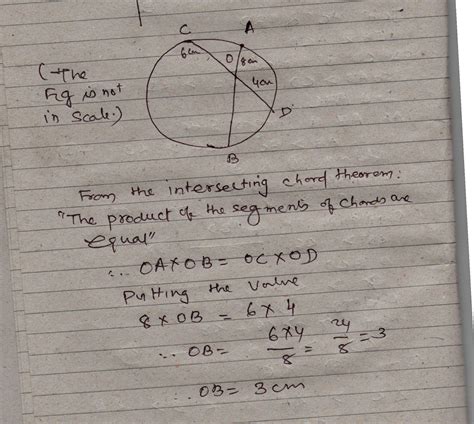 C A
6cm O 8cm
4cm
D
B
(The
Fig is not
in Scale.)
From the intersecting chord theorem:
"The product of the segments of chords are
equal"
∴ OA×OB = OC×OD
Putting the value
8 × OB = 6 × 4
∴ OB = 6×4/8 = 24/8 = 3
∴ OB = 3cm